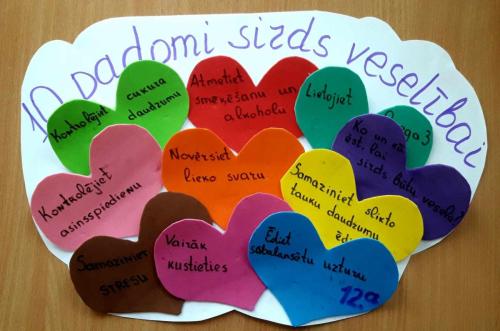 10 padomi sirds veselībai
Kontrolējiet cukura
daudzumu
Atmetiet
smēķēšanu un
alkoholu
Lietojiet
Omega 3
Ko un kā
ēst, lai
sirds būtu vesela?
Kontrolējiet
asinsspiedienu
Novērsiet
lieko svaru
Samaziniet slikto
tauku daudzumu
Samaziniet
STRESU
Vairāk
kustieties
Ēdiet
sabalansētu uzturu
12.a